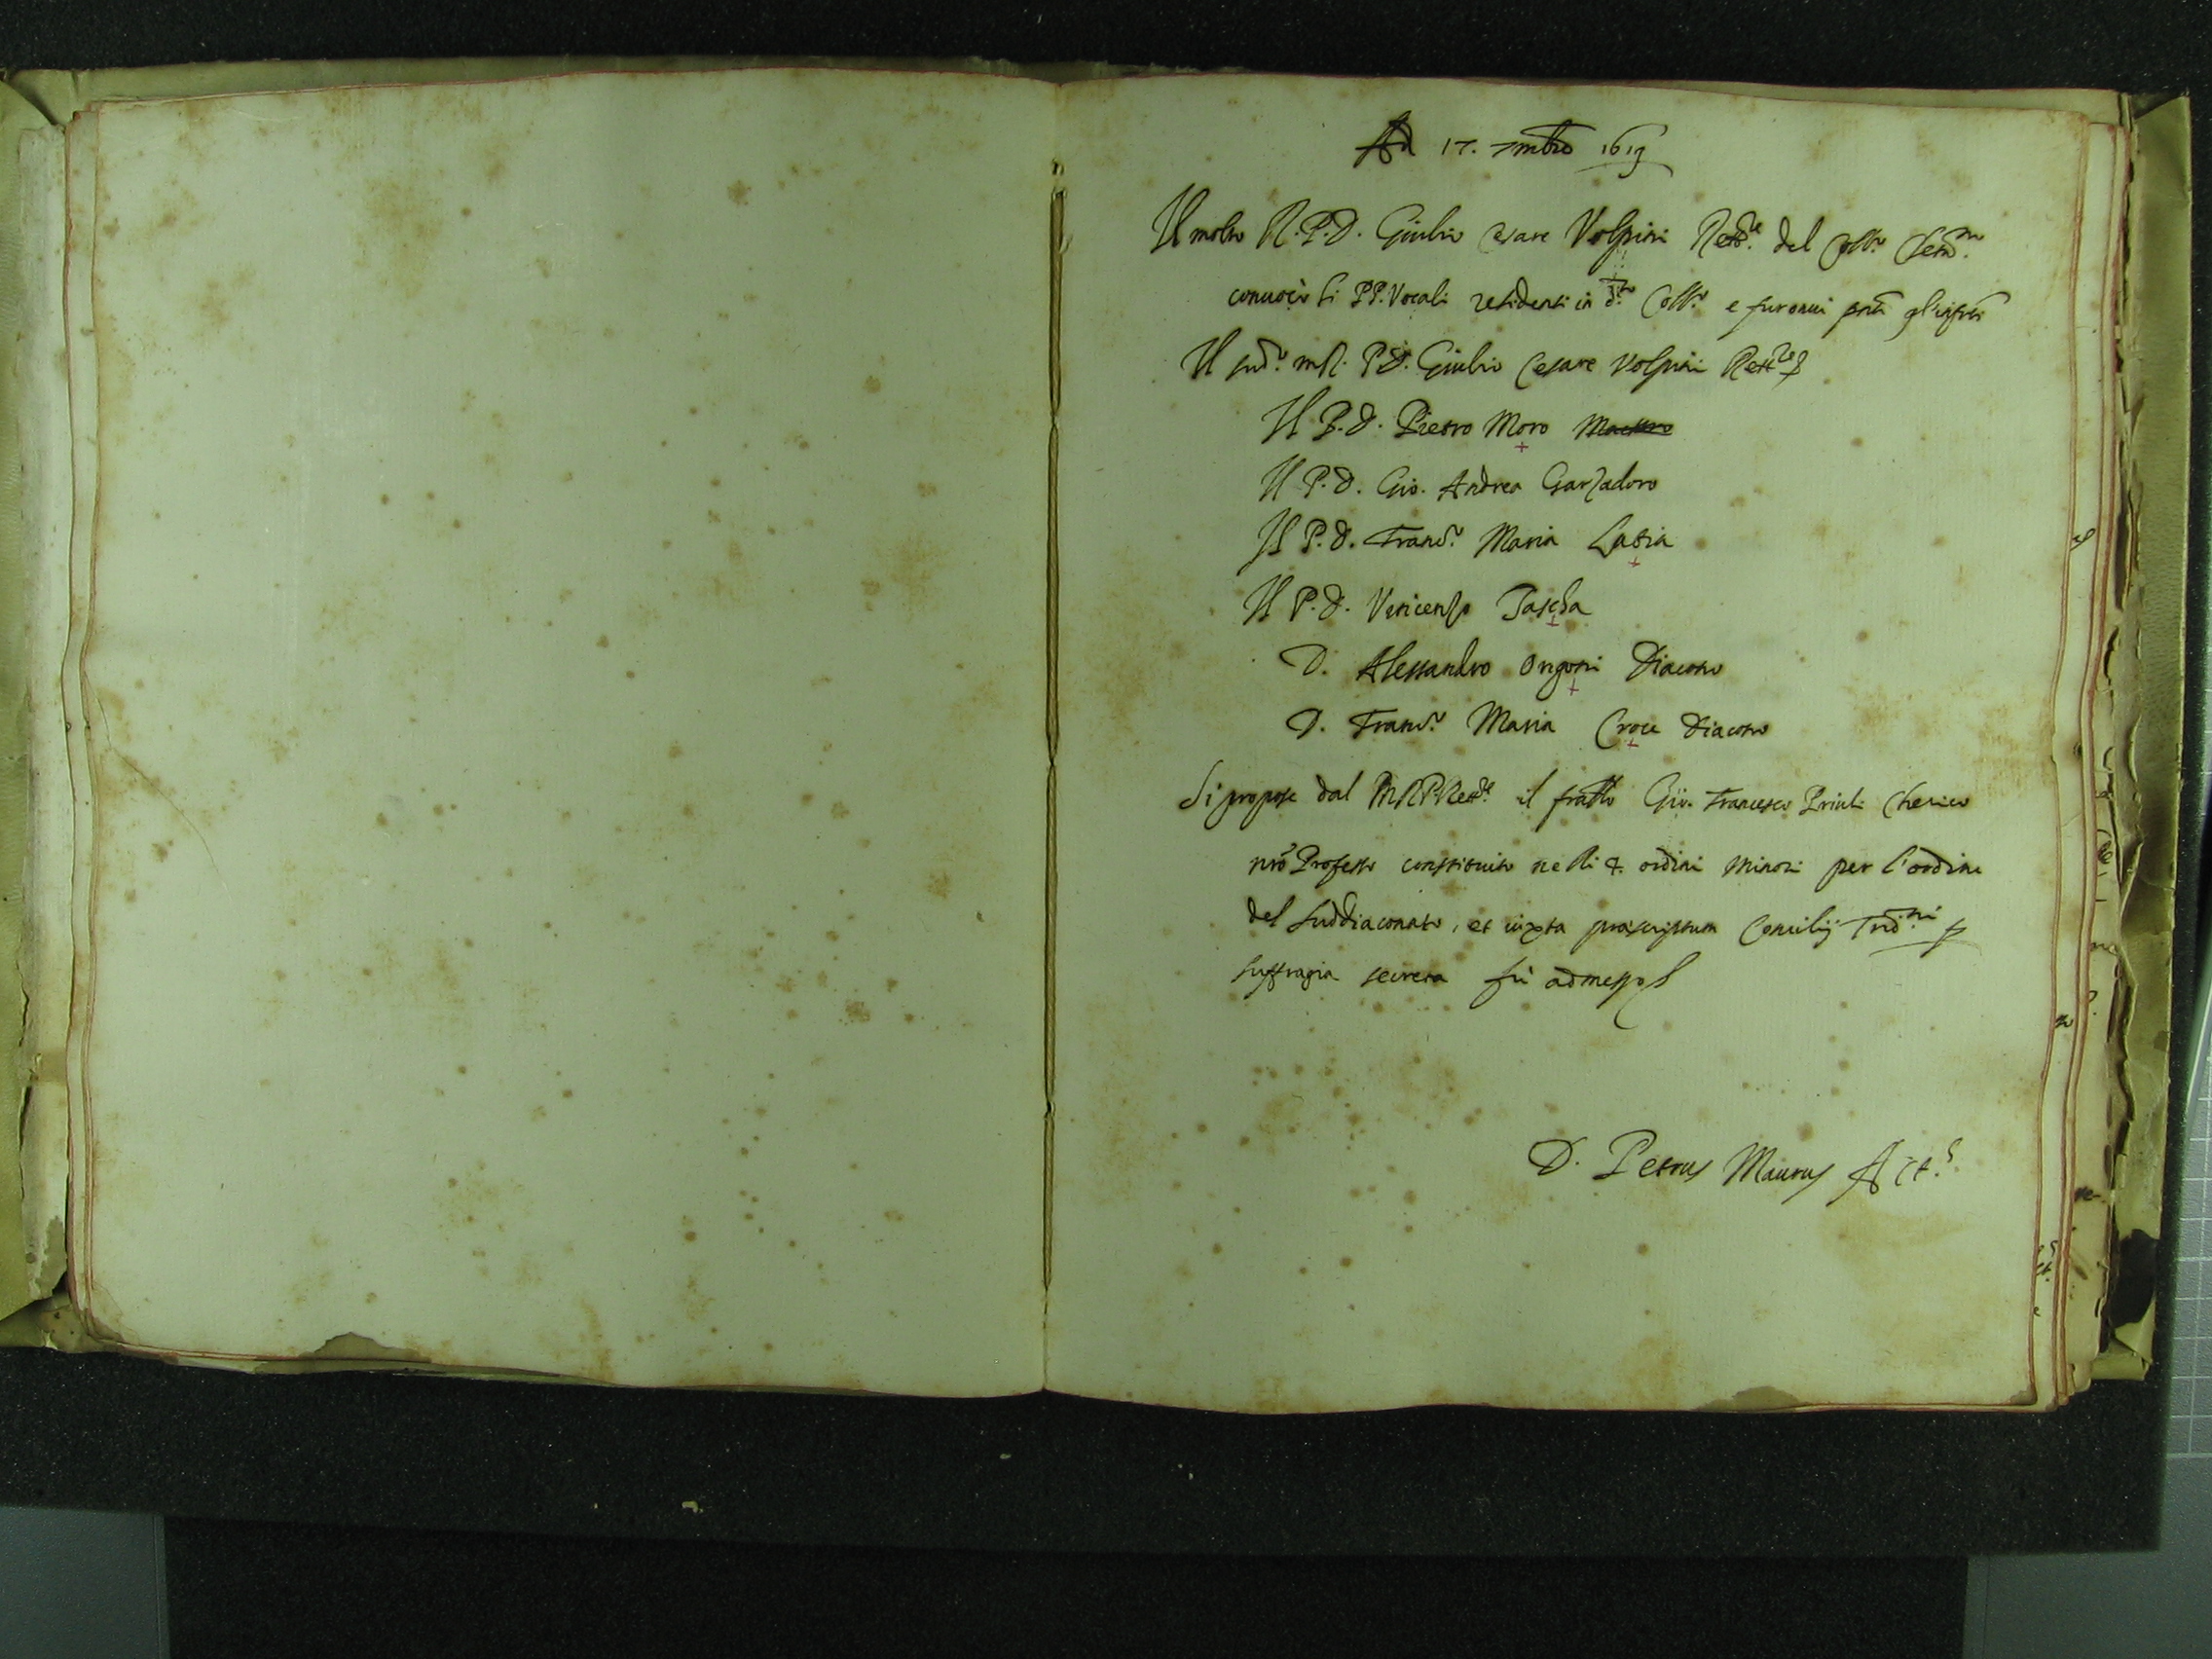 Ad 17. 7mbro 1619
Il molto R. P. D. Giulio Cesare Volpini Rett.re del Coll.o Clem.no
conuocò li PP. Vocali residenti in d.to Coll.o e furonui pnti gl'infrti
Il sud.o m R. P D. Giulio Cesare Volpini Rett.re
Il P. D. Pietro Moro Maestro
Il P. D. Gio. Andrea Garzadoro
Il P. D. Franc.o Maria Latia
Il P. D. Vincenzo Pascha
D. Alessandro Origoni Diacono
D. Franc.o Maria Croce Diacono
Si propose dal M R P. Rett.re il fratto Gio. Francesco Priuli Cherico
nro Professo constituito nelli 4. ordini minori per l'ordine
del Suddiaconato, et iuxta præscriptum Concilij Trid.ni p
suffragia secreta fù admesso
D. Petrus Maurus Act.s